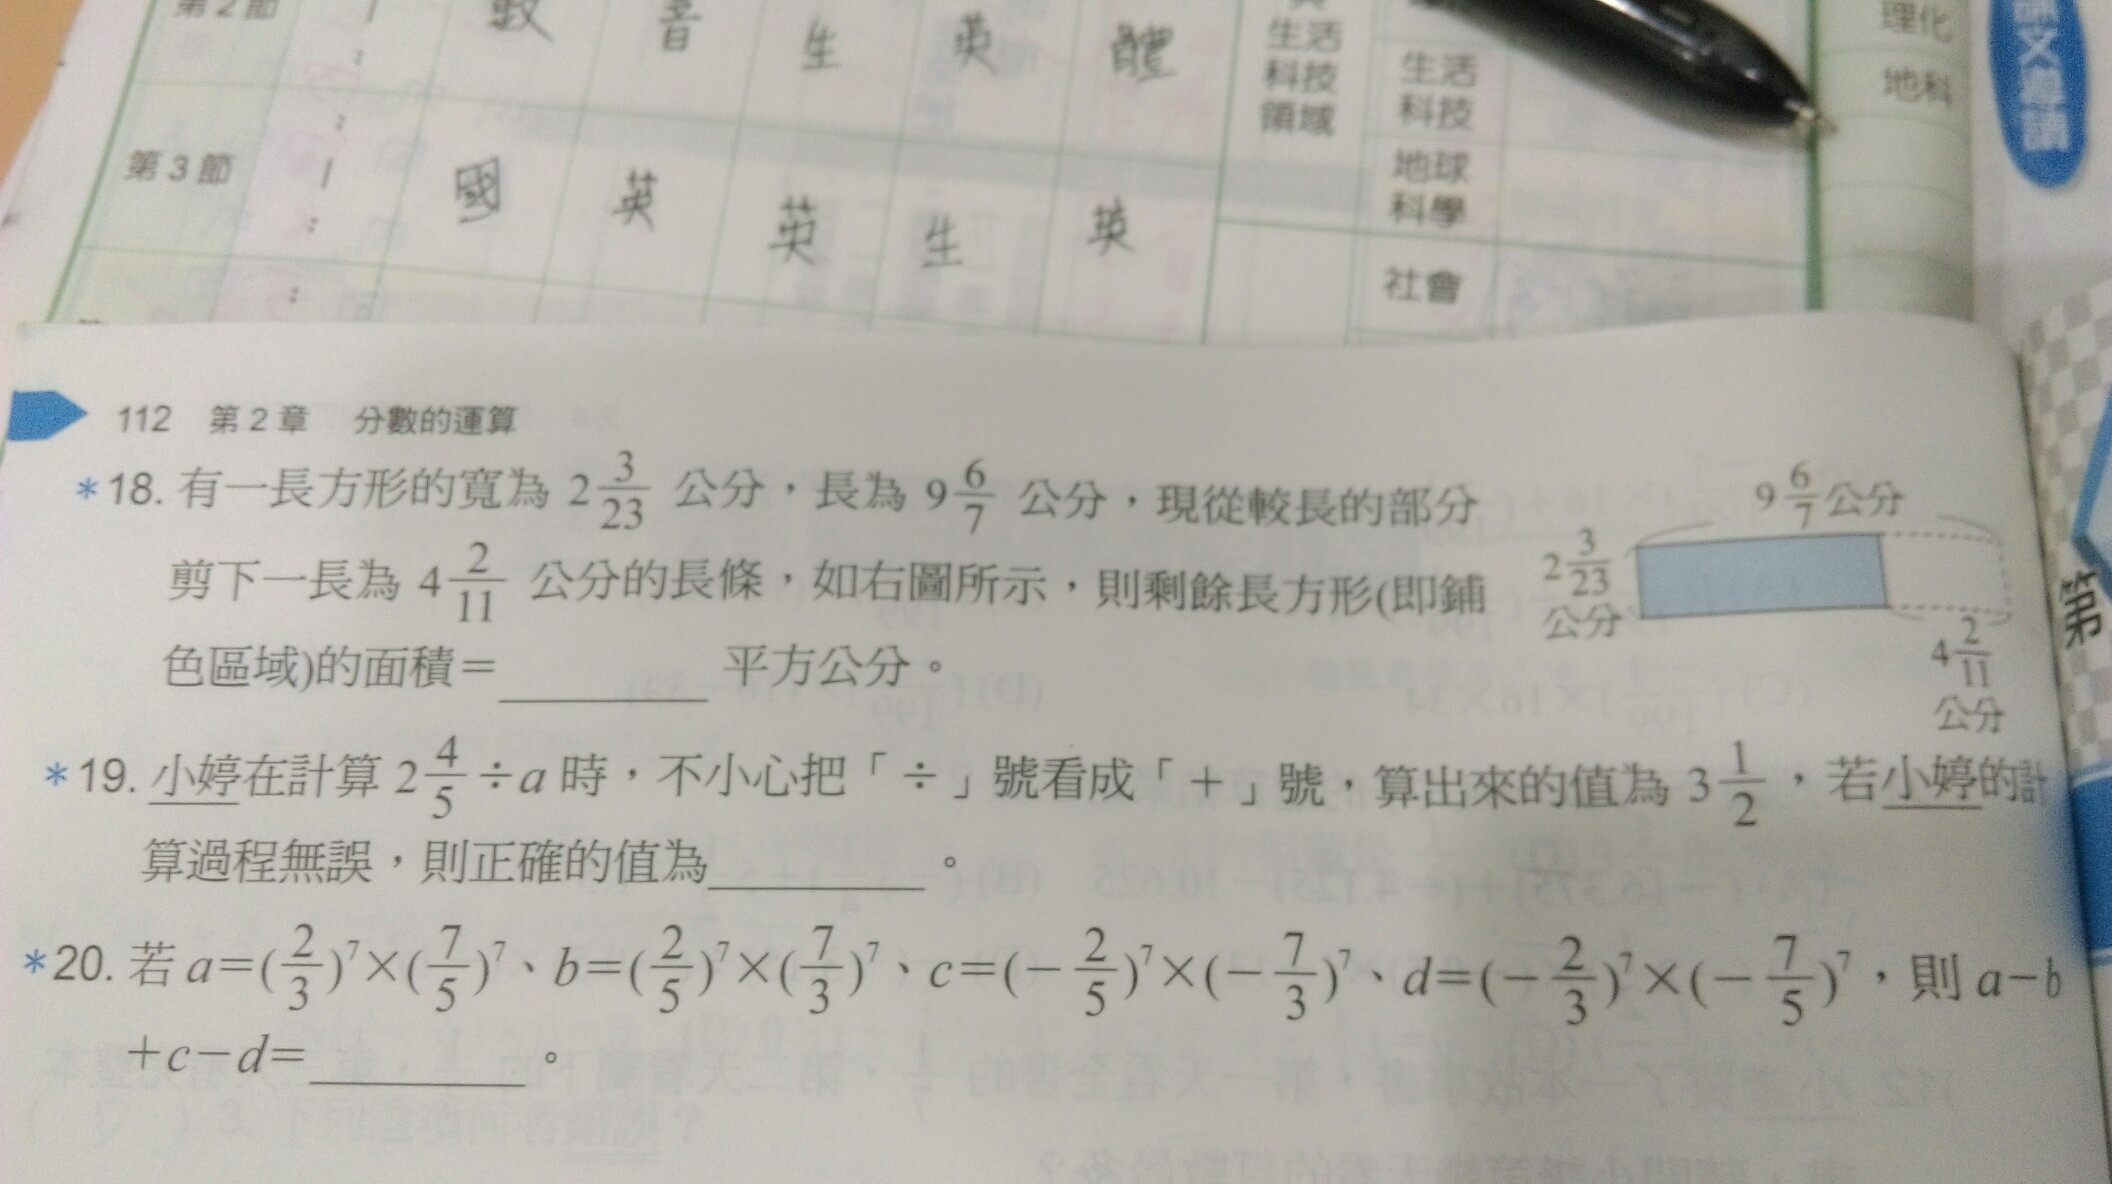 第2節 數 音 生 英 體
生活
科技
領域
生活
科技
理化
地科
文導讀
第3節 國 英 英 生 英
地球
科學
社會
112 第2章 分數的運算
*18. 有一長方形的寬為 2 3/23 公分,長為 9 6/7 公分,現從較長的部分
剪下一長為 4 2/11 公分的長條,如右圖所示,則剩餘長方形(即鋪
色區域)的面積=________ 平方公分。
9 6/7 公分
2 3/23
公分
4 2/11
公分
第
*19. 小婷在計算 2 4/5 ÷a 時,不小心把「÷」號看成「+」號,算出來的值為 3 1/2,若小婷的計
算過程無誤,則正確的值為________。
*20. 若 a=(2/3)⁷×(7/5)⁷、b=(2/5)⁷×(7/3)⁷、c=(-2/5)⁷×(-7/3)⁷、d=(-2/3)⁷×(-7/5)⁷,則 a-b
+c-d=________。